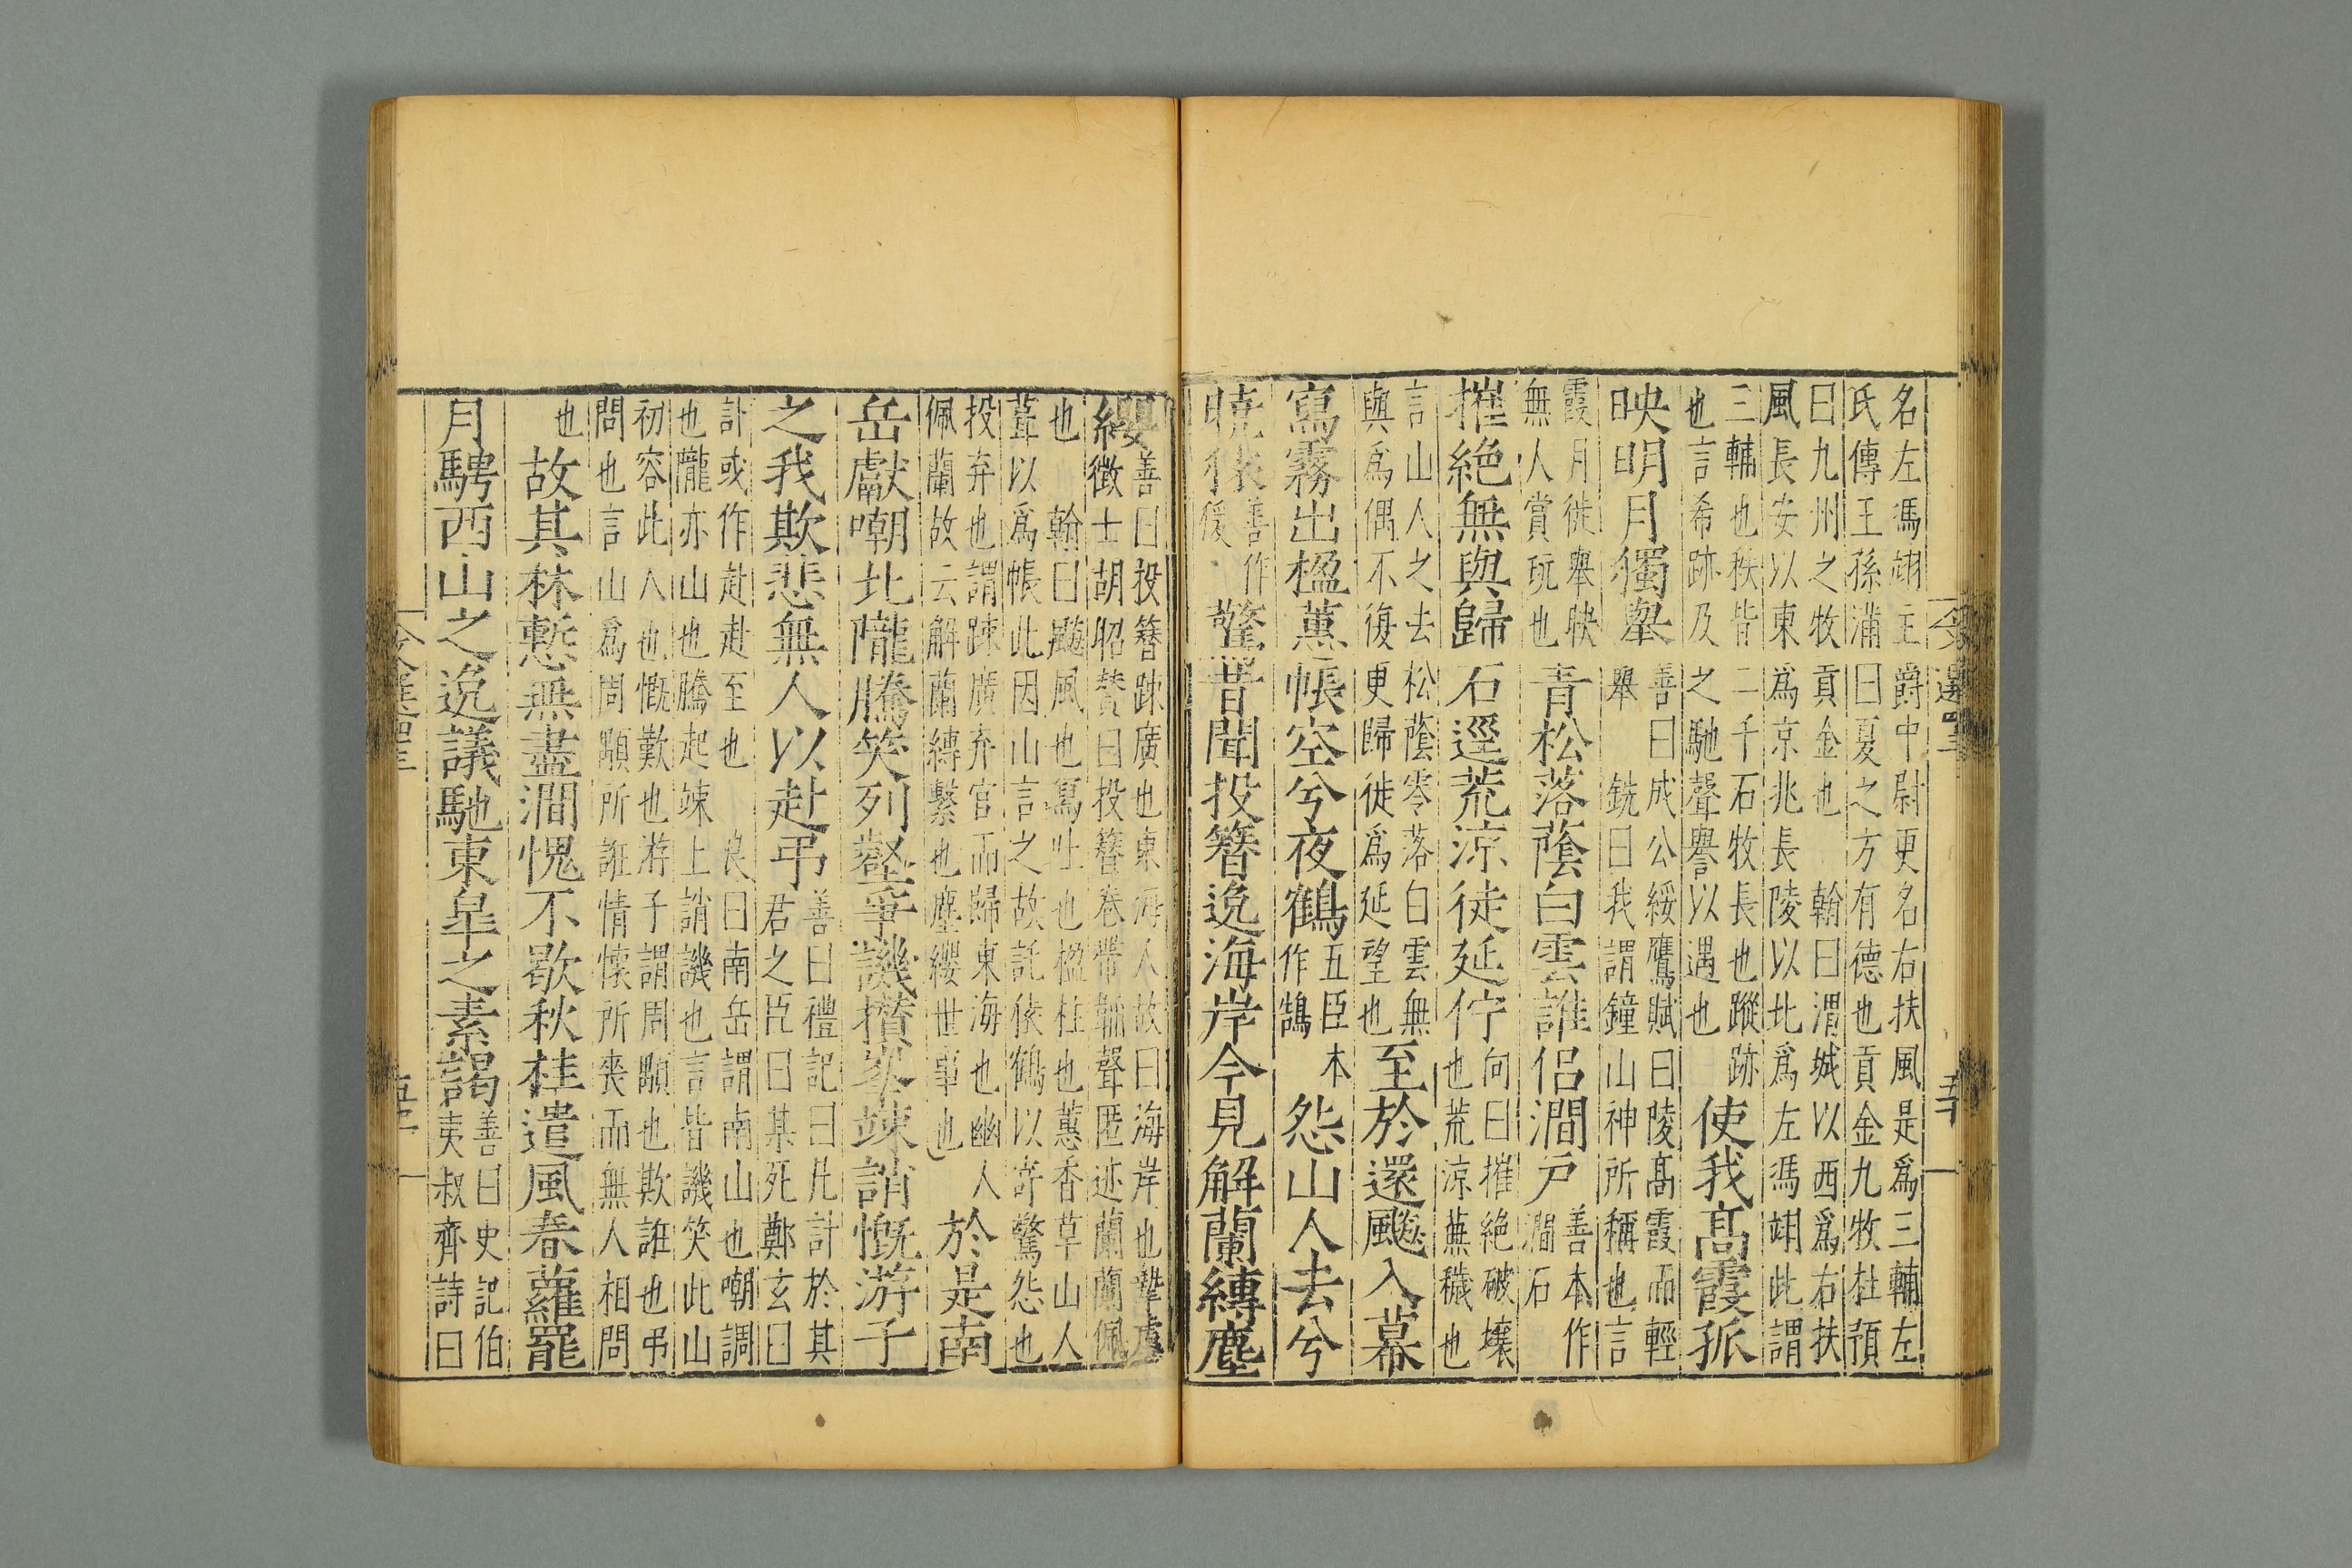 名左馮翊主爵中尉更名右扶風是爲三輔左
氏傳王孫滿曰夏之方有德也貢金九牧杜預
曰九州之牧貢金也 翰曰渭城以西爲右扶
風長安以東爲京兆長陵以北爲左馮翊此謂
三輔也秩皆二千石牧長也蹤跡
也言希跡及之馳聲譽以遇也
使我高霞孤
映明月獨舉
善曰成公綏鷹賦曰陵高霞而輕
舉 銑曰我謂鐘山神所稱也言
霞月徒舉映
無人賞玩也
青松落蔭白雲誰侶澗戶
善本作
澗石
摧絕無與歸石逕荒涼徒延佇
向曰摧絕破壞
也荒涼蕪穢也
言山人之去松蔭零落白雲無
與爲偶不復更歸徒爲延望也
至於還飈入幕
寫霧出楹蕙帳空兮夜鶴
五臣本
作鵠
怨山人去兮
曉猿
善作
猨
驚昔聞投簪逸海岸今見解蘭縛塵
纓
善曰投簪疎廣也東海人故曰海岸也摯虞
徵士胡昭贊曰投簪卷帶韜聲匿迹蘭蘭佩
也 翰曰飈風也寫吐也楹柱也蕙香草山人
葺以爲帳此因山言之故託猿鶴以寄驚怨也
投弃也謂疎廣弃官而歸東海也幽人
佩蘭故云解蘭縛繫也塵纓世事也
於是南
岳獻嘲北隴騰笑列壑爭譏攢峯竦誚慨游子
之我欺悲無人以赴弔
善曰禮記曰凡訃於其
君之臣曰某死鄭玄曰
訃或作赴赴至也 良曰南岳謂南山也嘲調
也隴亦山也騰起竦上誚譏也言皆譏笑此山
初容此人也慨歎也游子謂周顒也欺誑也弔
問也言山爲周顒所誑情懷所喪而無人相問
也
故其林慙無盡澗愧不歇秋桂遣風春蘿罷
月騁西山之逸議馳東皋之素謁
善曰史記伯
夷叔齊詩曰